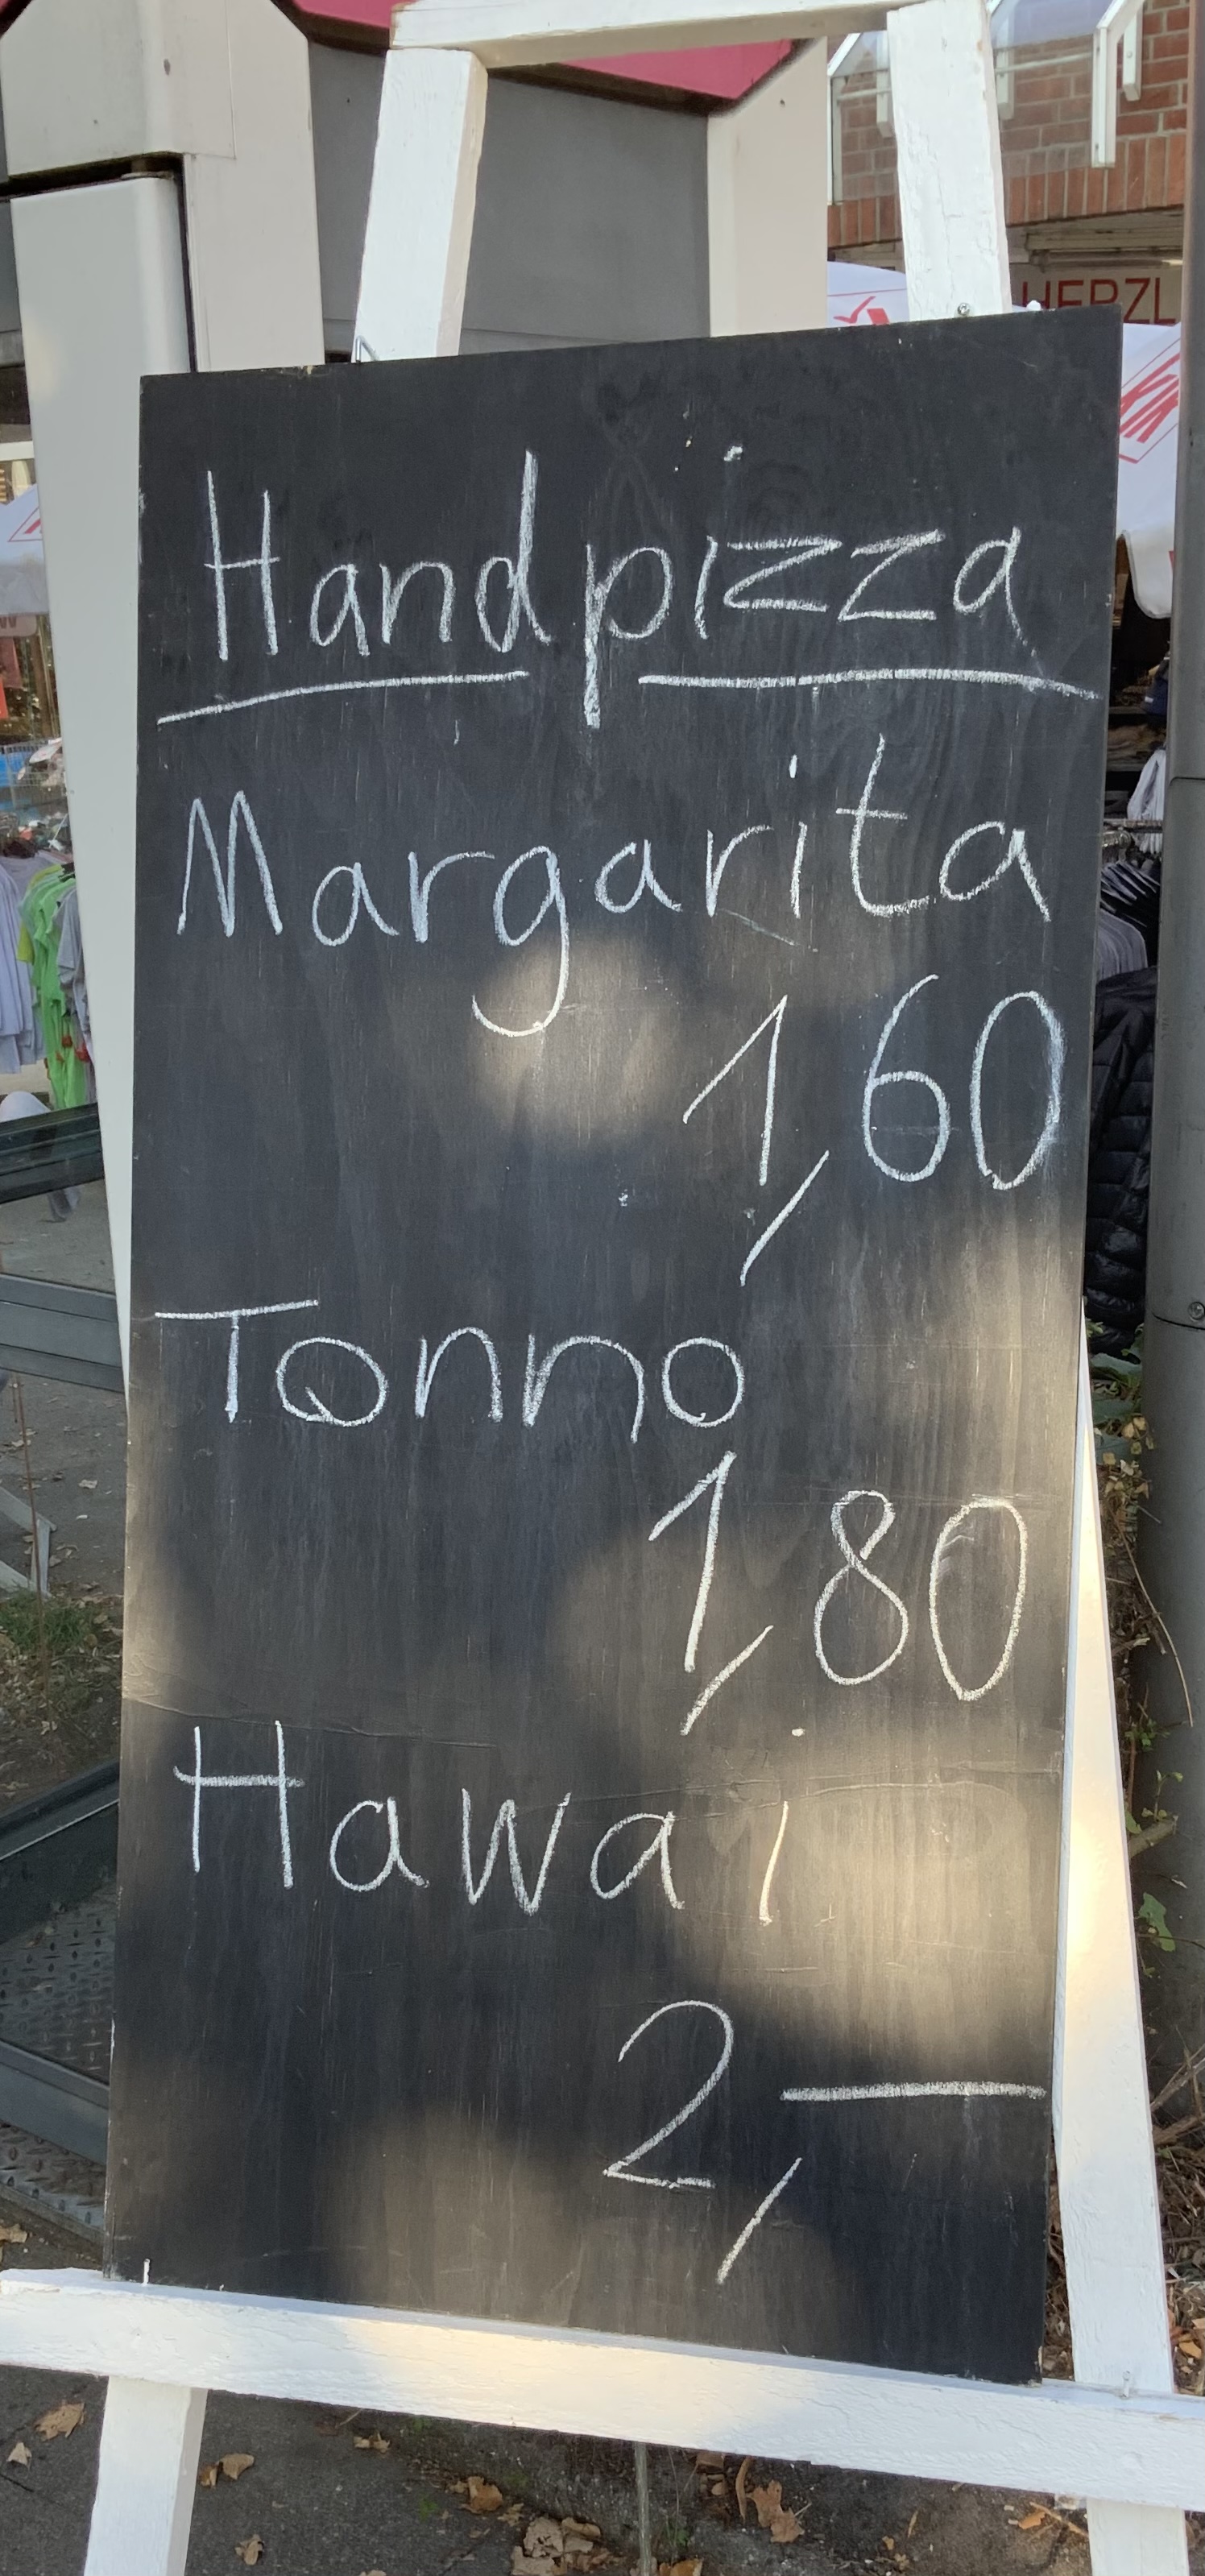 HERZL
Handpizza
Margarita
1,60
Tonno
1,80
Hawai
2,—